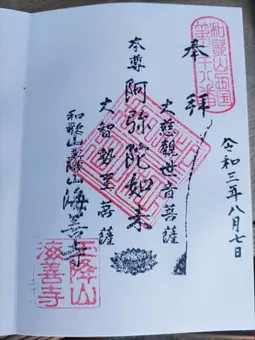 奉拝
令和三年八月七日
大慈観世音菩薩
本尊阿弥陀如来
大智勢至菩薩
和歌山
海善寺
和歌山西国
降山
海善寺